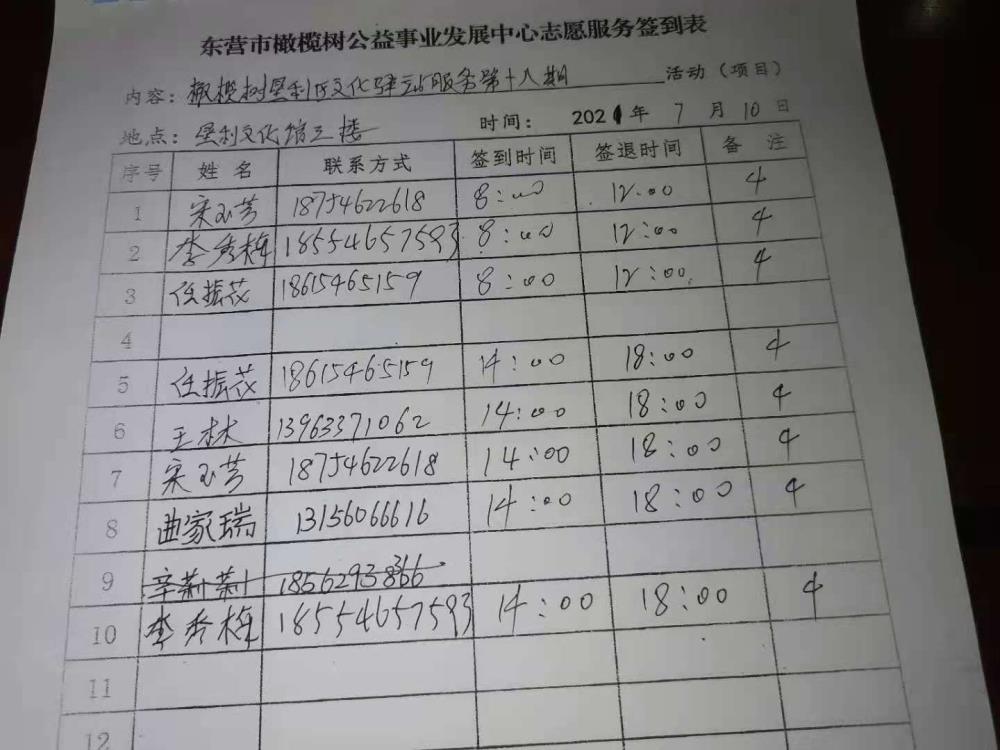 东营市橄榄树公益事业发展中心志愿服务签到表
内容：橄榄树垦利区文化驿站服务第十八期 活动（项目）
地点：垦利文化馆三楼 时间： 2021年 7 月 10 日
序号 姓名 联系方式 签到时间 签退时间 备 注
1 宋玉芳 18754622618 8:00 12:00 4
2 李秀梅 18554657593 8:00 12:00 4
3 任振花 18615465159 8:00 12:00 4
4
5 任振花 18615465159 14:00 18:00 4
6 王林 13963371062 14:00 18:00 4
7 宋玉芳 18754622618 14:00 18:00 4
8 曲家瑞 13156066616 14:00 18:00 4
9
10 李秀梅 18554657593 14:00 18:00 4
11
12